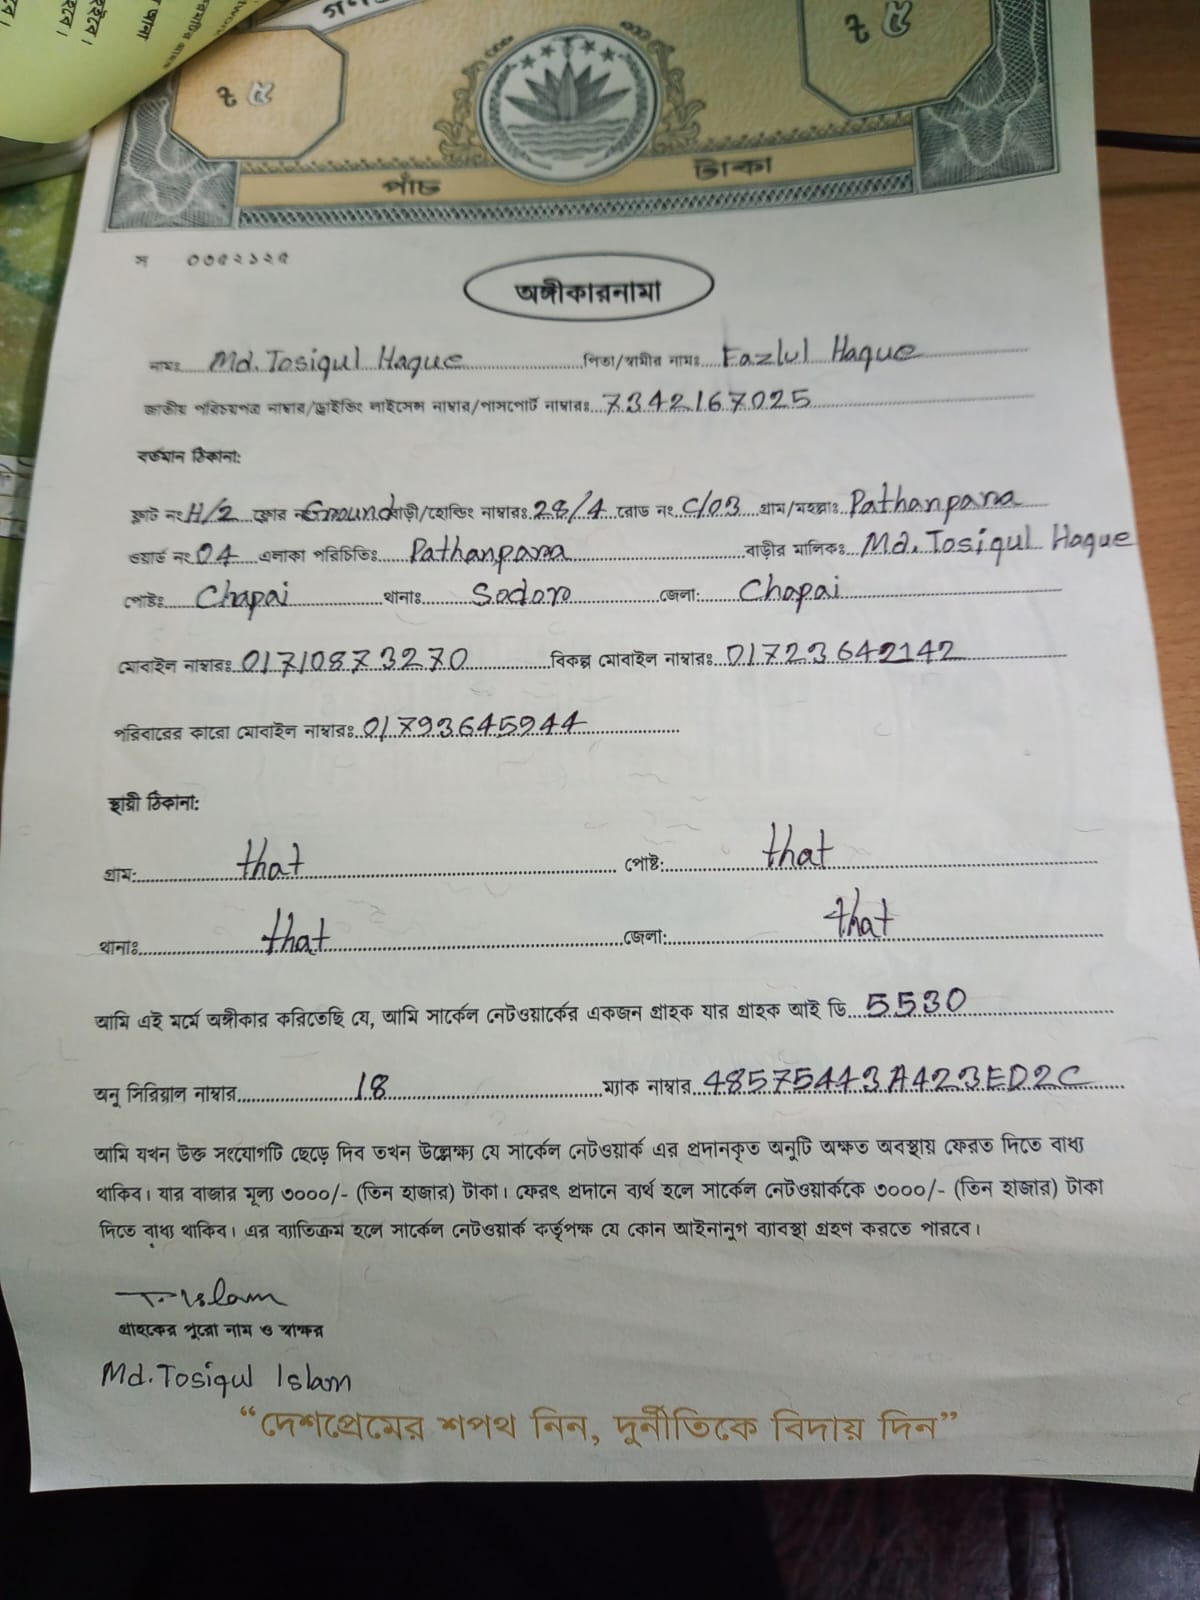 ৳ ৫
৳ ৫
পাঁচ টাকা
স ০৩৫২১২৫
অঙ্গীকারনামা
নামঃ Md. Tosiqul Haque পিতা/স্বামীর নামঃ Fazlul Haque
জাতীয় পরিচয়পত্র নাম্বার/ড্রাইভিং লাইসেন্স নাম্বার/পাসপোর্ট নাম্বারঃ 7342167025
বর্তমান ঠিকানা:
ফ্লাট নং H/2 ফ্লোর নং Ground বাড়ী/হোল্ডিং নাম্বারঃ 28/4 রোড নং C/03 গ্রাম/মহল্লাঃ Pathanpara
ওয়ার্ড নং 04 এলাকা পরিচিতিঃ Pathanpara বাড়ীর মালিকঃ Md. Tosiqul Haque
পোষ্টঃ Chapai থানাঃ Sodor জেলা: Chapai
মোবাইল নাম্বারঃ 01710873270 বিকল্প মোবাইল নাম্বারঃ 01723642142
পরিবারের কারো মোবাইল নাম্বারঃ 01793645944
স্থায়ী ঠিকানা:
গ্রাম: that পোষ্ট: that
থানাঃ that জেলা: that
আমি এই মর্মে অঙ্গীকার করিতেছি যে, আমি সার্কেল নেটওয়ার্কের একজন গ্রাহক যার গ্রাহক আই ডি 5530
অনু সিরিয়াল নাম্বার 18 ম্যাক নাম্বার 48575443A423ED2C
আমি যখন উক্ত সংযোগটি ছেড়ে দিব তখন উল্লেক্ষ্য যে সার্কেল নেটওয়ার্ক এর প্রদানকৃত অনুটি অক্ষত অবস্থায় ফেরত দিতে বাধ্য
থাকিব। যার বাজার মূল্য ৩০০০/- (তিন হাজার) টাকা। ফেরৎ প্রদানে ব্যর্থ হলে সার্কেল নেটওয়ার্ককে ৩০০০/- (তিন হাজার) টাকা
দিতে বাধ্য থাকিব। এর ব্যাতিক্রম হলে সার্কেল নেটওয়ার্ক কর্তৃপক্ষ যে কোন আইনানুগ ব্যাবস্থা গ্রহণ করতে পারবে।
T. Islam
গ্রাহকের পুরো নাম ও স্বাক্ষর
Md. Tosiqul Islam
“দেশপ্রেমের শপথ নিন, দুর্নীতিকে বিদায় দিন”